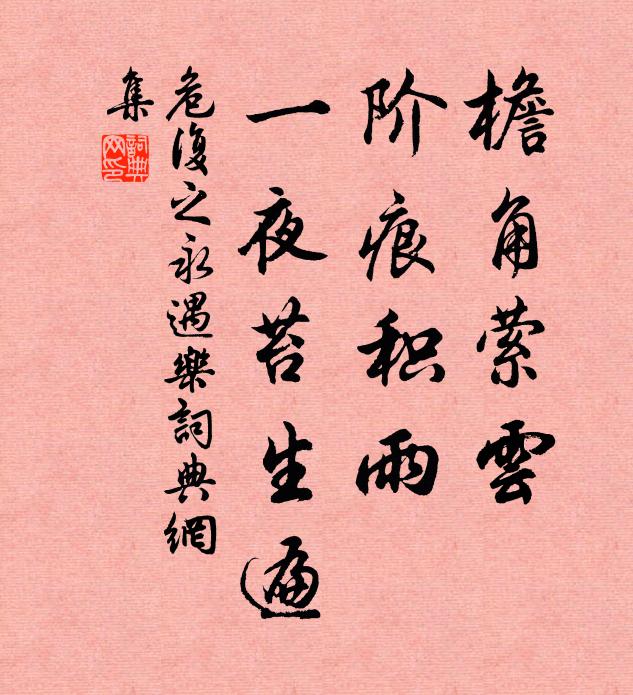 檐角萦雲
阶痕积雨
一夜苔生遍
危復之永遇樂詞典網
集
詞典
网印